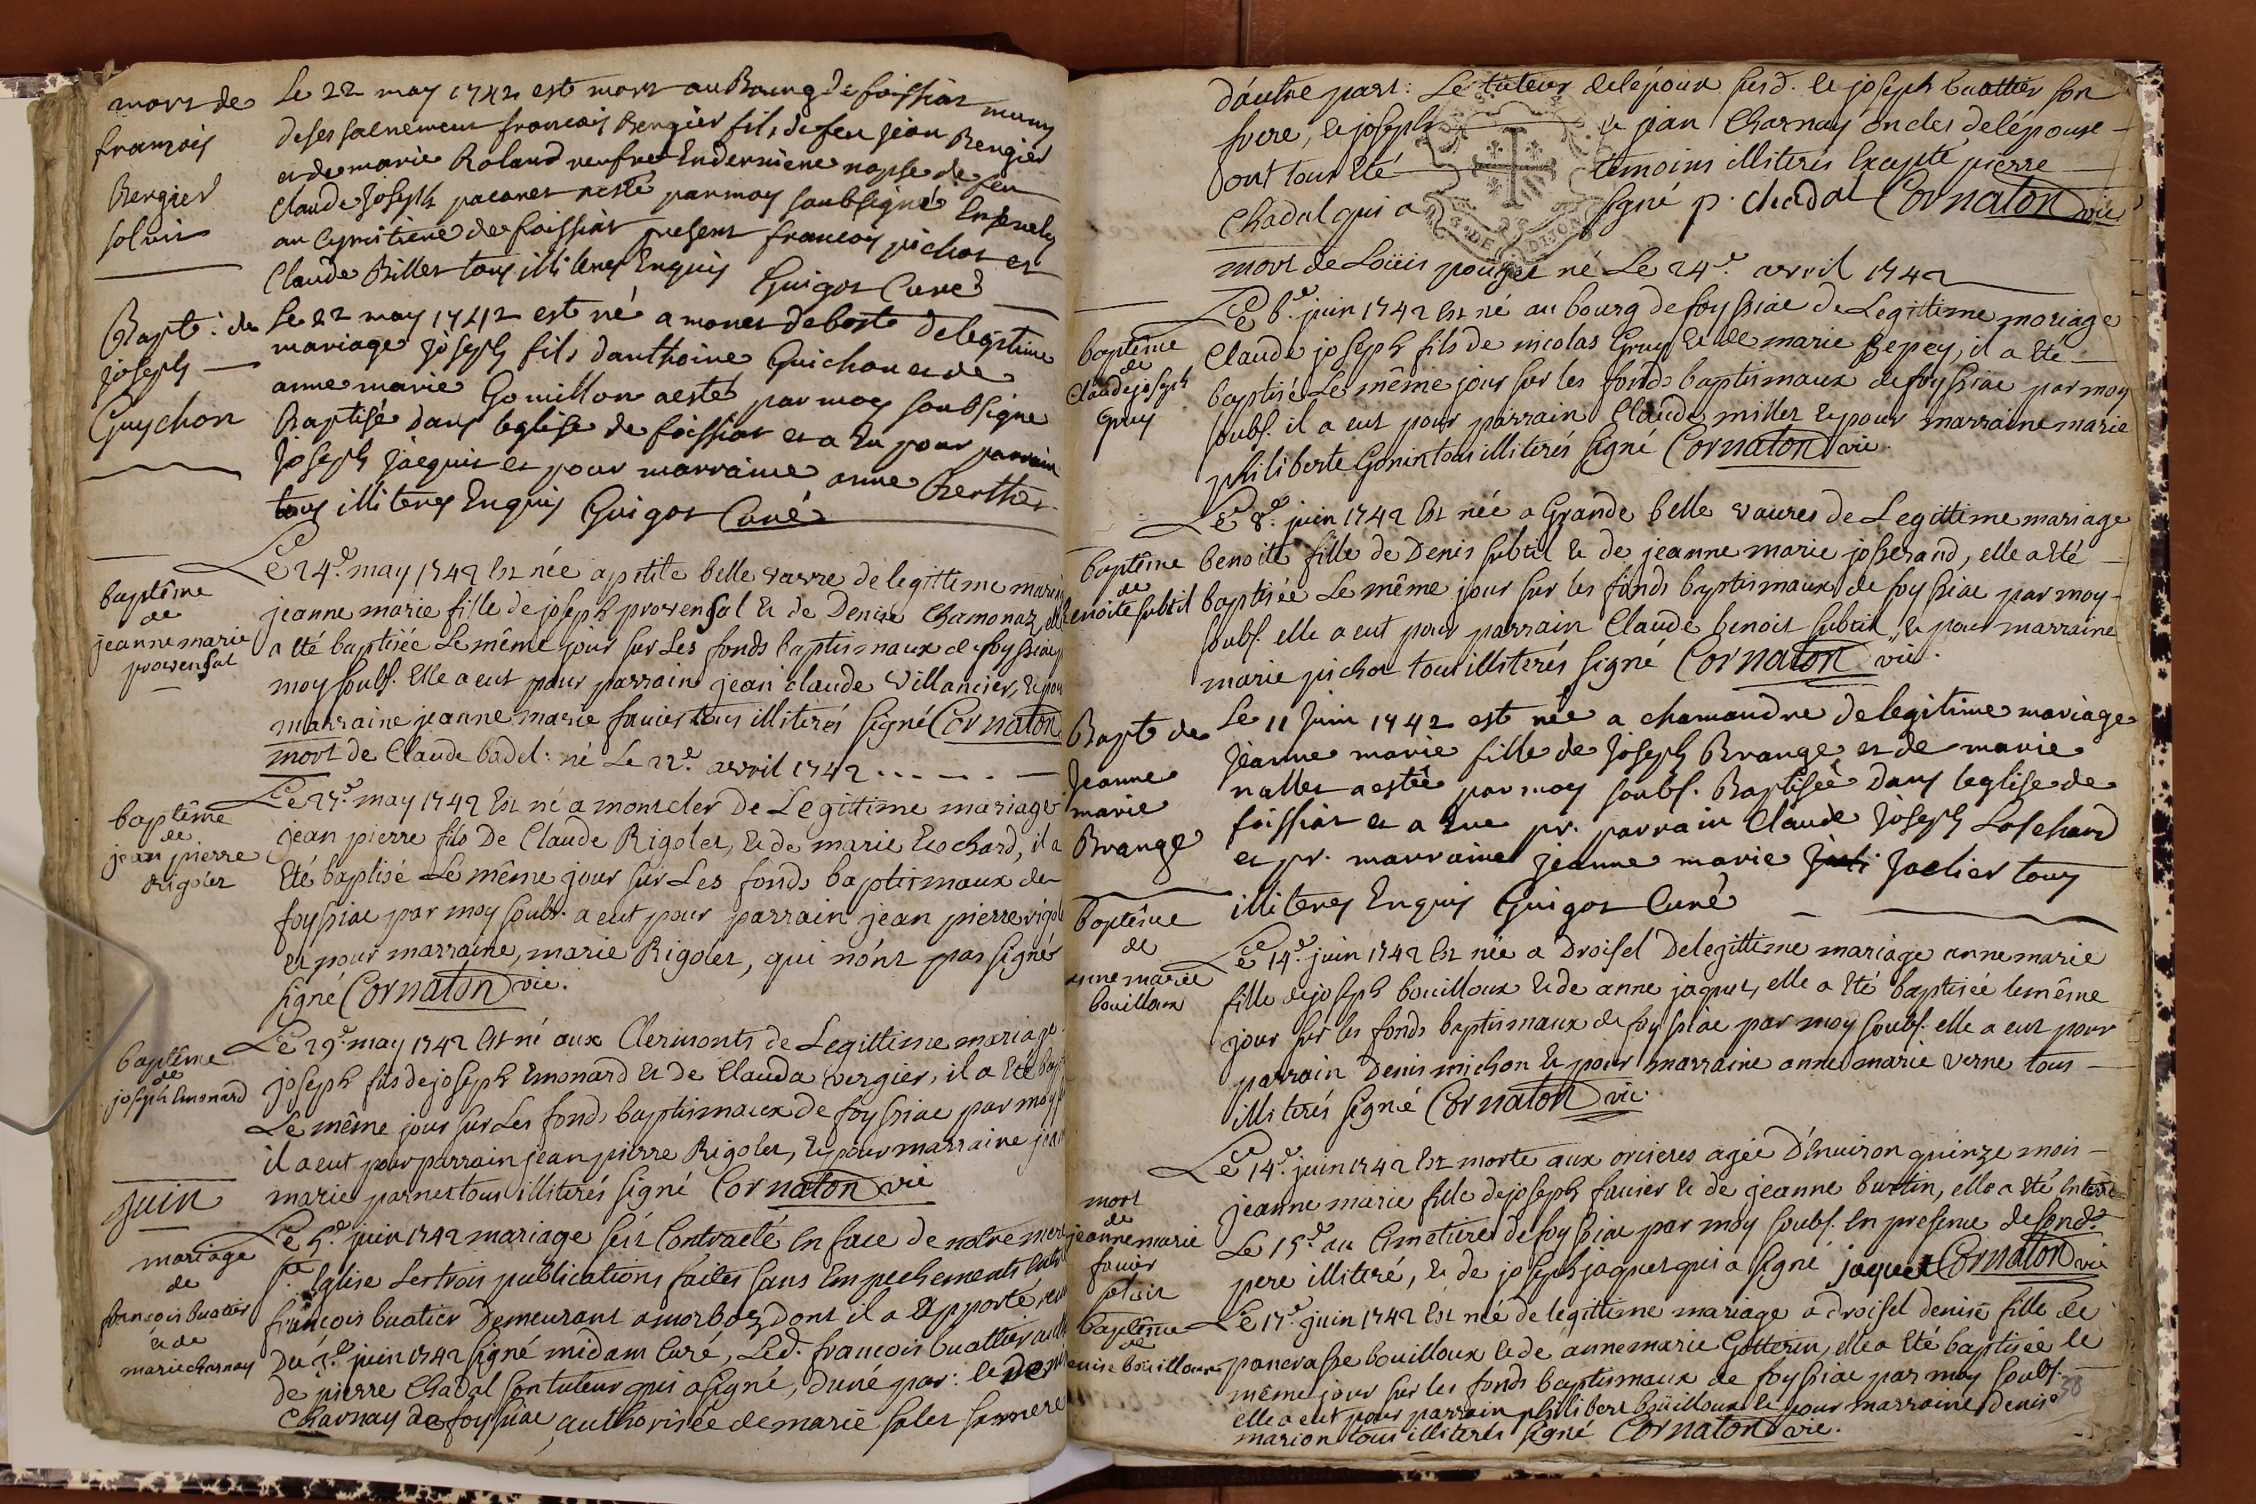 mort de
françois
Bergier
soluit
Le 22 may 1742 est mort au Bourg de foissiat muny
de ses sacremens francois Bergier fils de feu Jean Bergier
et de marie Roland veufve En derniere nopse de feu
Claude Joseph pacanet resté par moy soubsigné Ensevely
au Cymitiere de foissiat present francois pichot et
Claude Billet tous illiteres Enquis Guigot Curé
Bapt: de
joseph
Guychon
Le 22 may 1742 est né a monet deboste de legitime
mariage Joseph fils d'anthoine Guichon et de
anne marie Gouillon a esté par moy soubsigné
Baptisé dans leglise de foissiat et a Eu pour parrain
Joseph Jacquit et pour marraine anne Berthet
tous illiteres Enquis Guigot Curé
baptême
de
jeanne marie
provensal
Le 24e may 1742 Est née a petite belle vavre de legittime maria
jeanne marie fille de joseph provensal & de Denise Chamonaz, elle
a Eté baptisée Le même jour sur Les fonds baptismaux de foyssiac
moy soubs. Elle a eut pour parrain jean claude Villancier, & pou
marraine jeanne marie favier tous illiterés signé Cornaton
mort de Claude badel: né Le 22e avril 1742
baptême
de
jean pierre
Rigolet
Le 27e may 1742 Est né a montcler De Legittime mariage
jean pierre fils De Claude Rigolet, & de marie Cochard, il a
Eté baptisé Le même jour sur Les fonds baptismaux de
foyssiac par moy soubs. a eut pour parrain jean pierre rigol
et pour marraine, marie Rigolet, qui nónt pas signés
signé Cornaton vic.
baptême
de
joseph Emonard
Le 29e may 1742 Est né aux Clermonts de Legittime mariage
joseph fils de joseph Emonard & de Clauda vergier, il a Eté bapt
Le même jour sur Les fonds baptismaux de foyssiac par moy
il a eut pour parrain jean pierre Rigolet, & pour marraine jean
marie parnet tous illiterés signé Cornaton vic
Juin
mariage
de
françois buatier
& de
marie charnay
Le 5e juin 1742 mariage s'est Contracté En face de notre mere
ste Eglise Les trois publications faites sans Empechements entre
françois buatier Demeurant a morboz, Dont il a Apporté,
Du 3e juin 1742 signé midam Curé, Led. francois buattier
de pierre Chadal son tuteur qui a signé, d'une par: &
Charnay de foyssiac, authorisée de marie solet sa mere
d'autre part: Le tuteur de l'époux susd. & joseph buattier son
frere, & joseph & jean Charnay oncles de l'épouse
ont tous Eté temoins illiterés Excepté pierre
Chadal qui a signé p. chadal Cornaton vic
S. DE DIJON
mort de Loüis pouget né Le 24e avril 1742
baptême
de
Claude joseph
Gruy
Le 6e juin 1742 Est né au bourg de foyssiac de Legittime mariage
Claude joseph fils de nicolas Gruy & de marie pepey, il a Eté
baptisé Le même jour sur les fonds baptismaux de foyssiac par moy
soubs. il a eut pour parrain Claude millet & pour marraine marie
philiberte Gonin tous illiterés signé Cornaton vic.
baptême
de
benoite subtil
Le 8e juin 1742 Est née a Grande belle vavres de Legittime mariage
benoite fille de Denis subtil & de jeanne marie josserand, elle a Eté
baptisée Le même jour sur les fonds baptismaux de foyssiac par moy
soubs. elle a eut pour parrain Claude benoit subtil, & pour marraine
marie pichot tous illiterés signé Cornaton vic.
Bapt de
Jeanne
marie
Brange
Le 11 Juin 1742 est née a chamandre de legitime mariage
Jeanne marie fille de Joseph Brange et de marie
nallet a estée par moy soubs. Baptisée Dans leglise de
foissiat et a Eue pr. parrain Claude Joseph Loschard
et pr. marraine Jeanne marie Jaclier tous
illiteres Enquis Guigot Curé
baptême
de
anne marie
bouilloux
Le 14e juin 1742 Est née a Droisel De legittime mariage anne marie
fille de joseph bouilloux & de anne jaquet, elle a Eté baptisée le même
jour sur les fonds baptismaux de foyssiac par moy soubs. elle a eut pour
parrain Denis michon & pour marraine anne marie verne tous
illiterés signé Cornaton vic.
mort
de
jeanne marie
favier
soluit
Le 14e juin 1742 Est morte aux orcieres agée D'environ quinze mois
jeanne marie fille de joseph favier & de jeanne burtin, elle a Eté Enterée
Le 15e au Cimetiere de foyssiac par moy soubs. En presence de sond.
pere illiteré, & de joseph jaquet qui a signé jaquet Cornaton vic
baptême
de
denise bouilloux
Le 17e juin 1742 Est née de legittime mariage a droisel denise fille de
pancrasse bouilloux & de anne marie Gotterin, elle a Eté baptisée le
même jour sur les fonds baptismaux de foyssiac par moy soubs.
elle a eut pour parrain philibert boüilloux & pour marraine denise
marion tous illiterés signé Cornaton vic.